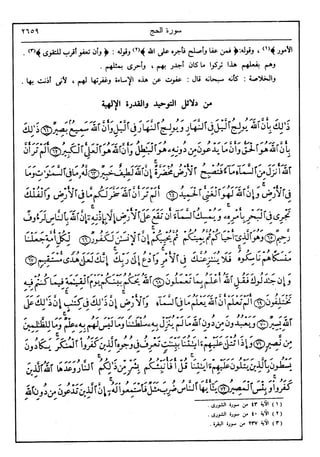 سورة الحج ٢٦٥٩
الأمور ﴾(١) ، وقوله : ﴿ فمن عفا وأصلح فأجره على الله ﴾(٢) وقوله : ﴿ وأن تعفو أقرب للتقوى ﴾(٣) .
وهم بفعلهم هذا تركوا ما كان أجدر بهم ، وأحرى بمثلهم .
والخلاصة : كأنه سبحانه قال : عفوت عن هذه الإساءة وغفرتها لهم ، لأنى أذنت بها .
من دلائل التوحيد والقدرة الإلهية
ذَٰلِكَ بِأَنَّ اللَّهَ يُولِجُ اللَّيْلَ فِي النَّهَارِ وَيُولِجُ النَّهَارَ فِي اللَّيْلِ وَأَنَّ اللَّهَ سَمِيعٌ بَصِيرٌ ﴿٦١﴾ ذَٰلِكَ
بِأَنَّ اللَّهَ هُوَ الْحَقُّ وَأَنَّ مَا يَدْعُونَ مِن دُونِهِ هُوَ الْبَاطِلُ وَأَنَّ اللَّهَ هُوَ الْعَلِيُّ الْكَبِيرُ ﴿٦٢﴾ أَلَمْ تَرَ أَنَّ
اللَّهَ أَنزَلَ مِنَ السَّمَاءِ مَاءً فَتُصْبِحُ الْأَرْضُ مُخْضَرَّةً إِنَّ اللَّهَ لَطِيفٌ خَبِيرٌ ﴿٦٣﴾ لَّهُ مَا فِي السَّمَاوَاتِ وَمَا
فِي الْأَرْضِ وَإِنَّ اللَّهَ لَهُوَ الْغَنِيُّ الْحَمِيدُ ﴿٦٤﴾ أَلَمْ تَرَ أَنَّ اللَّهَ سَخَّرَ لَكُم مَّا فِي الْأَرْضِ وَالْفُلْكَ
تَجْرِي فِي الْبَحْرِ بِأَمْرِهِ وَيُمْسِكُ السَّمَاءَ أَن تَقَعَ عَلَى الْأَرْضِ إِلَّا بِإِذْنِهِ إِنَّ اللَّهَ بِالنَّاسِ لَرَءُوفٌ
رَّحِيمٌ ﴿٦٥﴾ وَهُوَ الَّذِي أَحْيَاكُمْ ثُمَّ يُمِيتُكُمْ ثُمَّ يُحْيِيكُمْ إِنَّ الْإِنسَانَ لَكَفُورٌ ﴿٦٦﴾ لِّكُلِّ أُمَّةٍ جَعَلْنَا
مَنسَكًا هُمْ نَاسِكُوهُ فَلَا يُنَازِعُنَّكَ فِي الْأَمْرِ وَادْعُ إِلَىٰ رَبِّكَ إِنَّكَ لَعَلَىٰ هُدًى مُّسْتَقِيمٍ ﴿٦٧﴾
وَإِن جَادَلُوكَ فَقُلِ اللَّهُ أَعْلَمُ بِمَا تَعْمَلُونَ ﴿٦٨﴾ اللَّهُ يَحْكُمُ بَيْنَكُمْ يَوْمَ الْقِيَامَةِ فِيمَا كُنتُمْ فِيهِ
تَخْتَلِفُونَ ﴿٦٩﴾ أَلَمْ تَعْلَمْ أَنَّ اللَّهَ يَعْلَمُ مَا فِي السَّمَاءِ وَالْأَرْضِ إِنَّ ذَٰلِكَ فِي كِتَابٍ إِنَّ ذَٰلِكَ عَلَى
اللَّهِ يَسِيرٌ ﴿٧٠﴾ وَيَعْبُدُونَ مِن دُونِ اللَّهِ مَا لَمْ يُنَزِّلْ بِهِ سُلْطَانًا وَمَا لَيْسَ لَهُم بِهِ عِلْمٌ وَمَا لِلظَّالِمِينَ
مِن نَّصِيرٍ ﴿٧١﴾ وَإِذَا تُتْلَىٰ عَلَيْهِمْ آيَاتُنَا بَيِّنَاتٍ تَعْرِفُ فِي وُجُوهِ الَّذِينَ كَفَرُوا الْمُنكَرَ يَكَادُونَ
يَسْطُونَ بِالَّذِينَ يَتْلُونَ عَلَيْهِمْ آيَاتِنَا قُلْ أَفَأُنَبِّئُكُم بِشَرٍّ مِّن ذَٰلِكُمُ النَّارُ وَعَدَهَا اللَّهُ الَّذِينَ
كَفَرُوا وَبِئْسَ الْمَصِيرُ ﴿٧٢﴾ يَا أَيُّهَا النَّاسُ ضُرِبَ مَثَلٌ فَاسْتَمِعُوا لَهُ إِنَّ الَّذِينَ تَدْعُونَ مِن دُونِ اللَّهِ
(١) الآية ٤٣ من سورة الشورى .
(٢) الآية ٤٠ من سورة الشورى .
(٣) الآية ٢٣٧ من سورة البقرة .